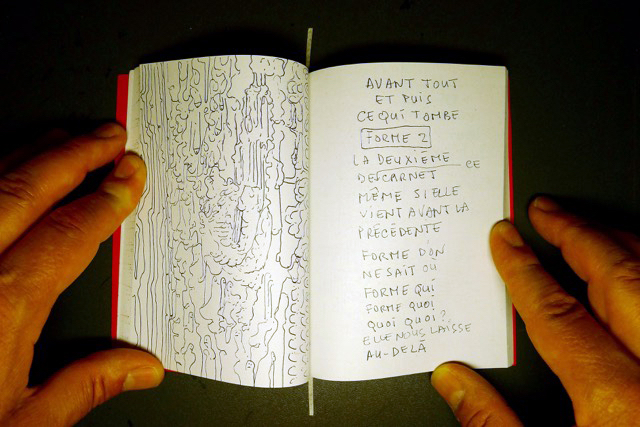 AVANT TOUT
ET PUIS
CE QUI TOMBE
FORME 2
LA DEUXIÈME CE
DE CARNET
MÊME SI ELLE
VIENT AVANT LA
PRÉCÉDENTE
FORME D'ON
NE SAIT OÙ
FORME QUI
FORME QUOI
QUOI QUOI?
ELLE NOUS LAISSE
AU-DELÀ